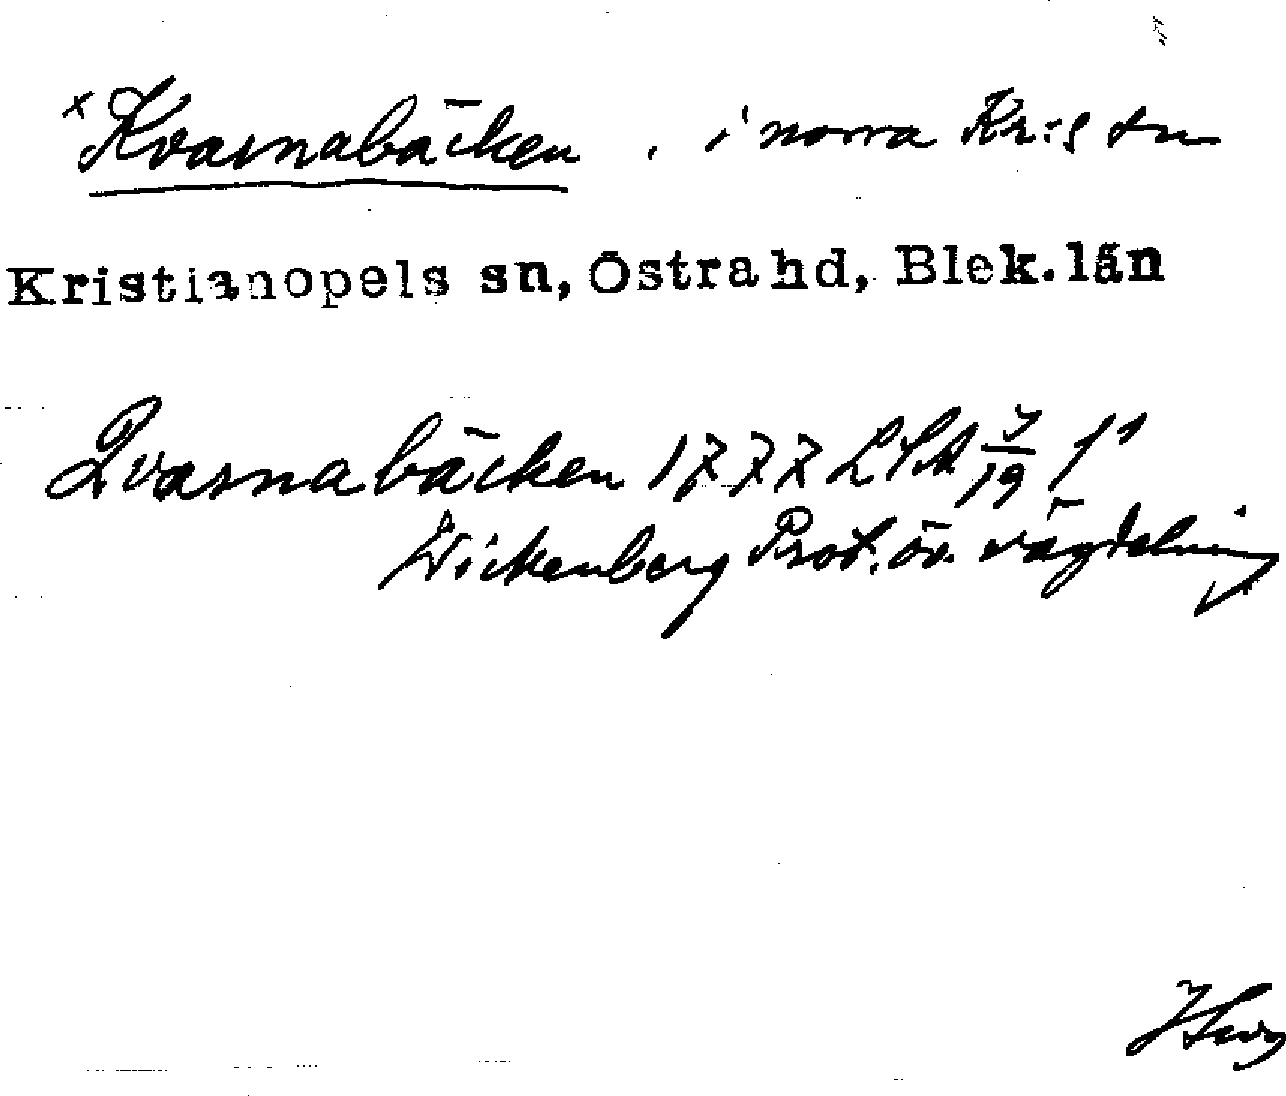 x Kvarnabäcken, i norra Kr:s sn
Kristianopels sn, Östra hd, Blek. län
Qvarnabäcken 1777 LSA 7/19 f 1
Wickenberg Prot. öv. vägdelning